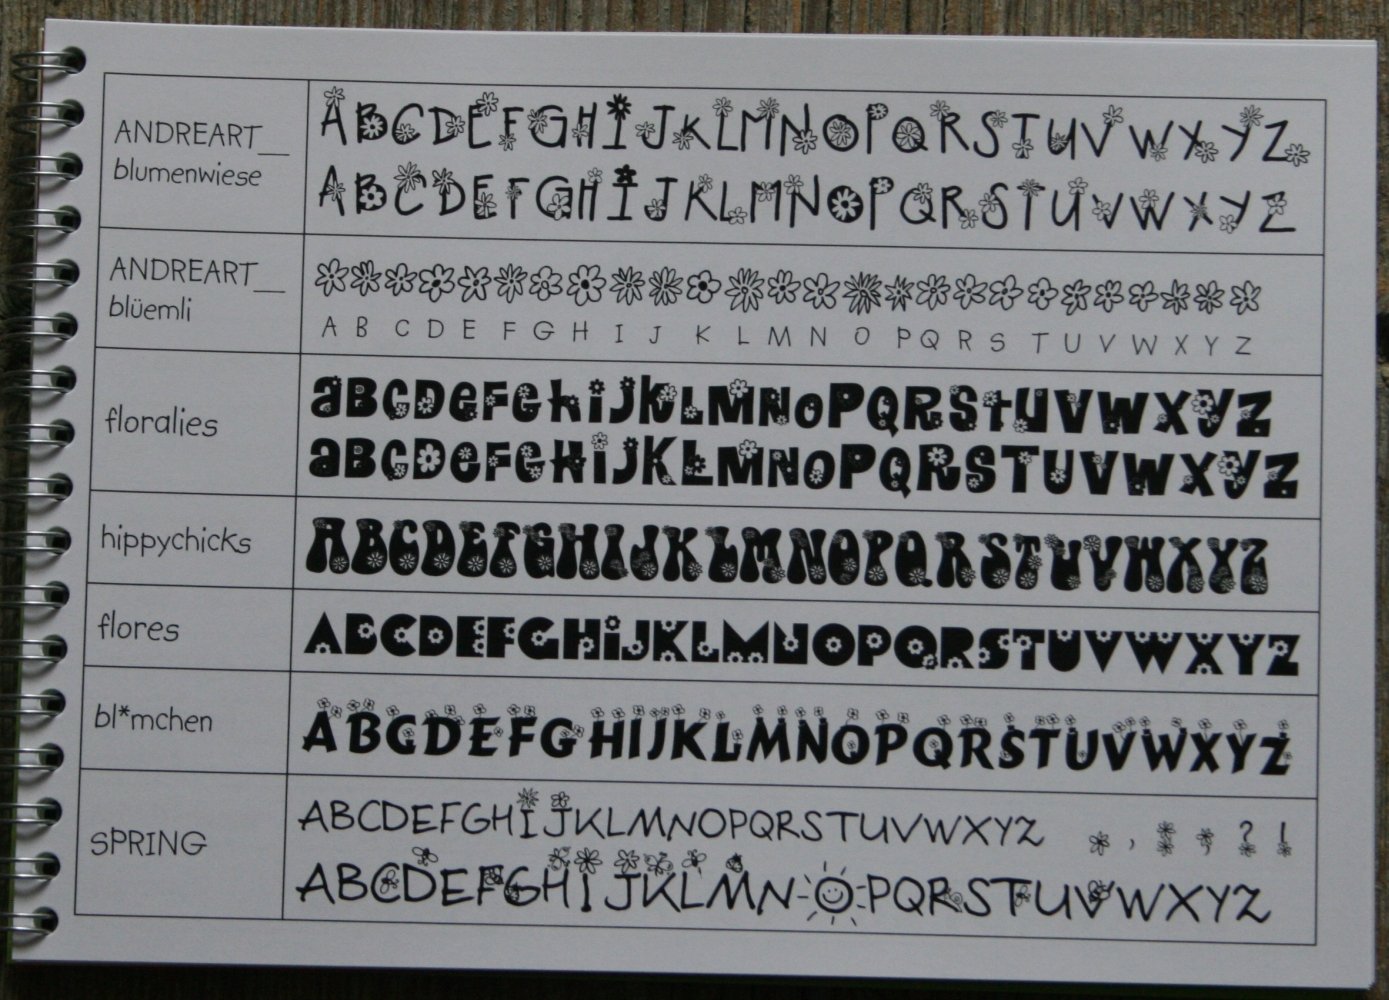 ANDREART_
blumenwiese
ABCDEFGHIJKLMNOPQRSTUVWXYZ
ABCDEFGHIJKLMNOPQRSTUVWXYZ
ANDREART_
blüemli
A B C D E F G H I J K L M N O P Q R S T U V W X Y Z
floralies
aBCDeFGhiJkLMNoPQRStUVWXyZ
aBCDeFGHiJKLMNOPQRSTUVWXyZ
hippychicks
ABCDEFGHIJKLMNOPQRSTUVWXYZ
flores
ABCDEFGHiJKLMNOPQRSTUVWXYZ
bl*mchen
ABCDEFGHIJKLMNOPQRSTUVWXYZ
SPRING
ABCDEFGHIJKLMNOPQRSTUVWXYZ . , : ; ? !
ABCDEFGHIJKLMNOPQRSTUVWXYZ